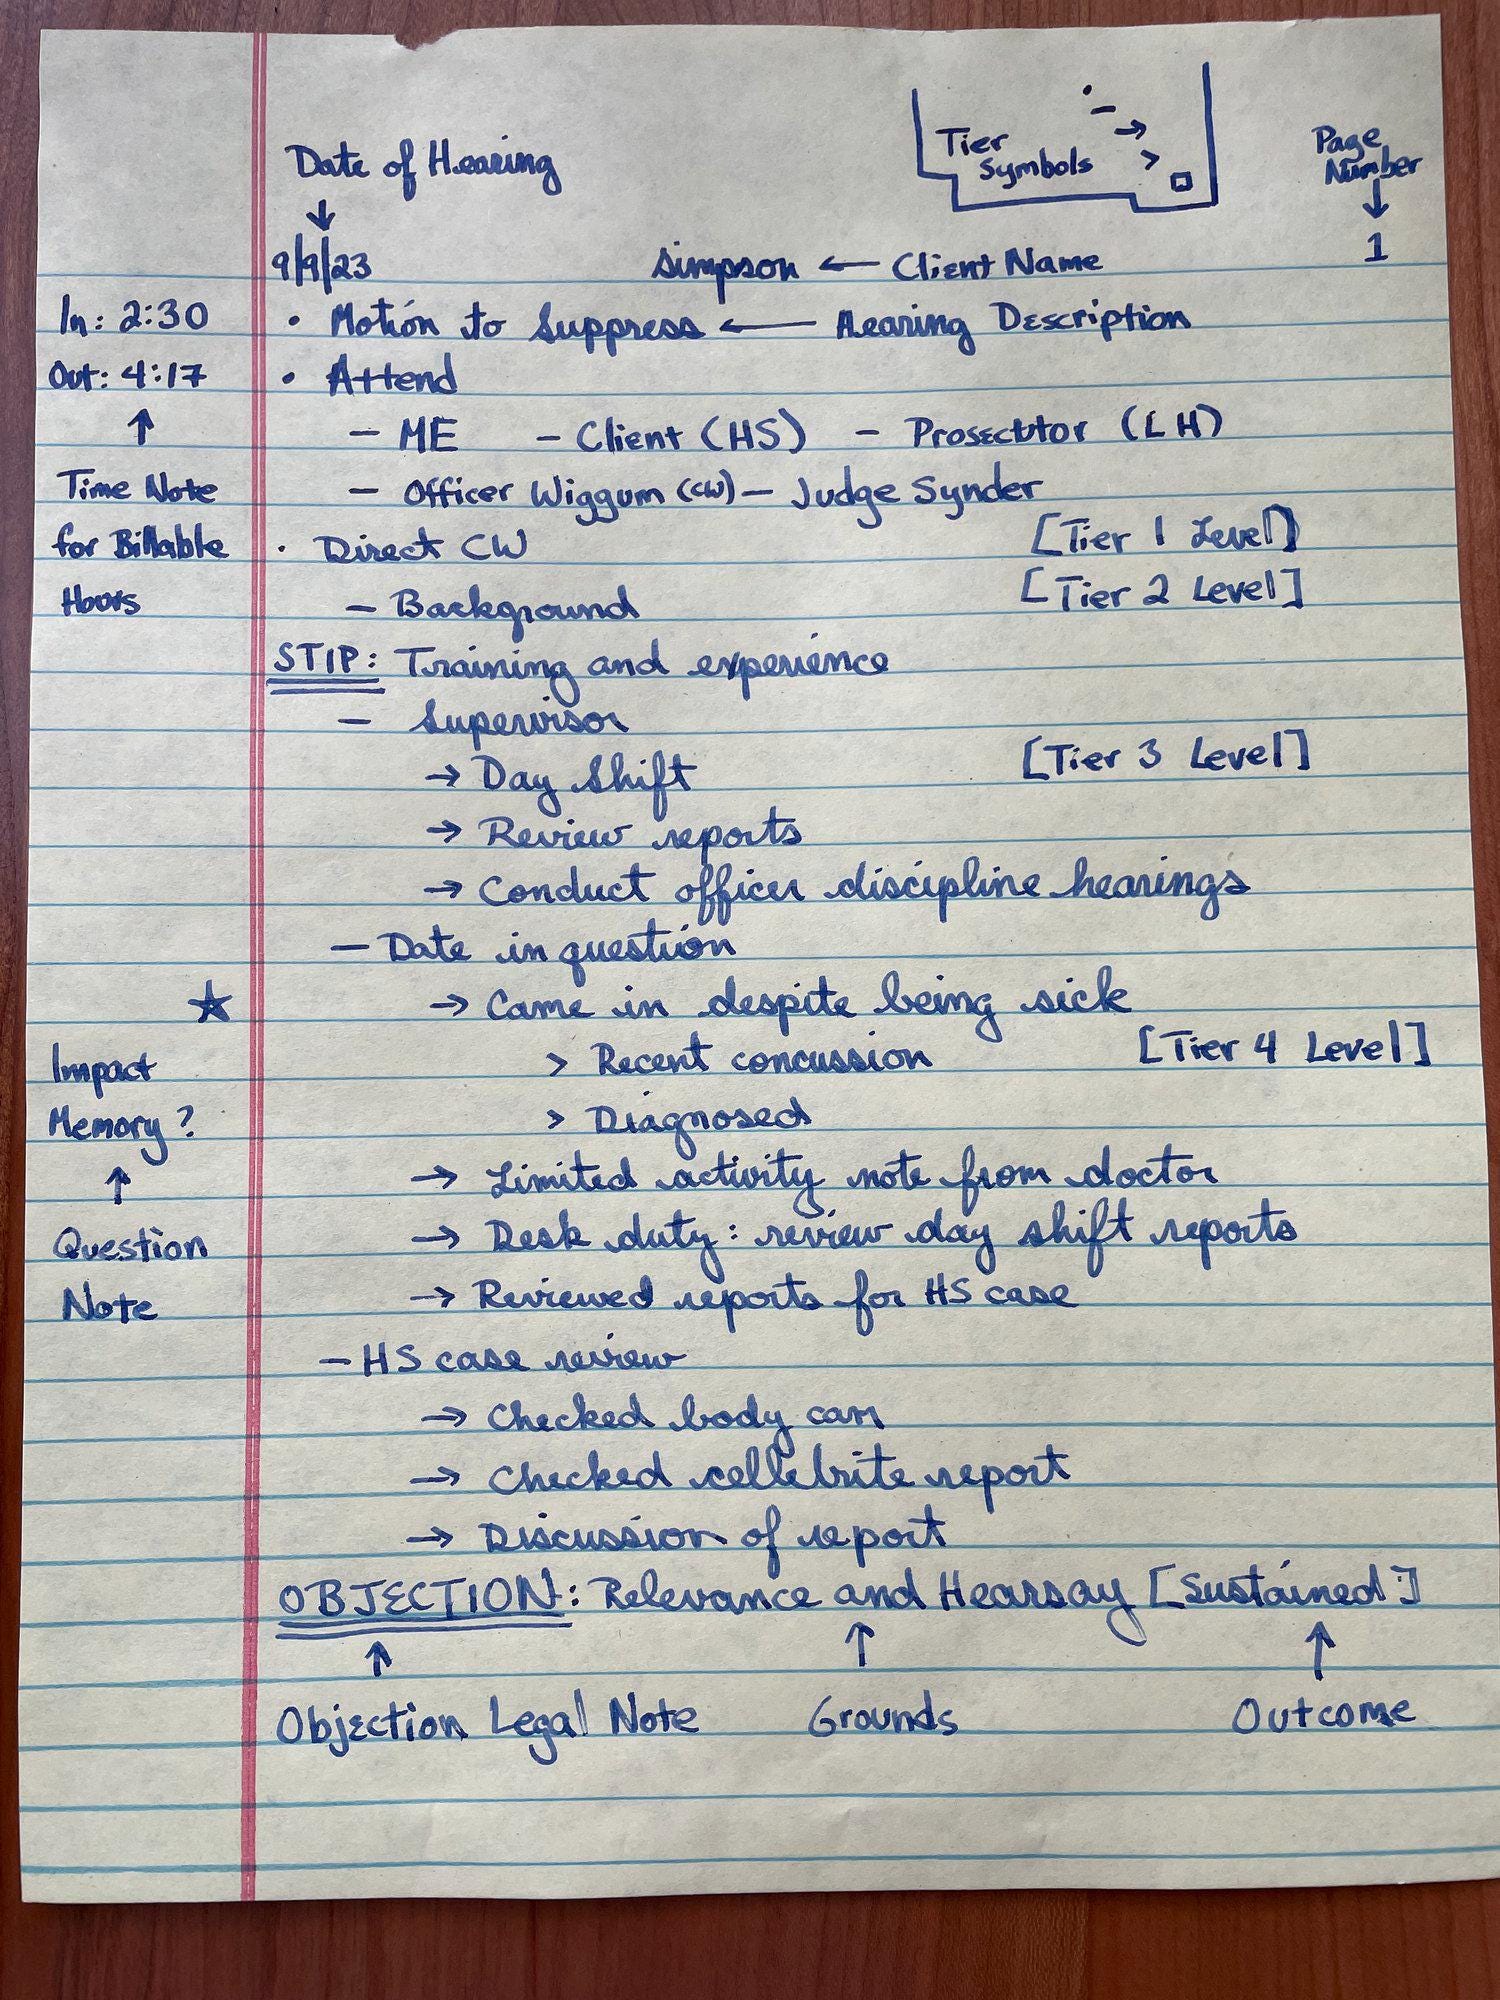 Tier • –
Symbols → > □
Page
Number
↓
Date of Hearing
↓
9/9/23 Simpson ← Client Name 1
In: 2:30 • Motion to Suppress ← Hearing Description
Out: 4:17 • Attend
↑ – ME – Client (HS) – Prosecutor (LH)
Time Note – Officer Wiggum (CW) – Judge Synder
for Billable • Direct CW [Tier 1 Level]
Hours – Background [Tier 2 Level]
STIP: Training and experience
– Supervisor
→ Day Shift [Tier 3 Level]
→ Review reports
→ Conduct officer discipline hearings
– Date in question
★ → Came in despite being sick
Impact > Recent concussion [Tier 4 Level]
Memory? > Diagnosed
↑ → Limited activity note from doctor
Question → Desk duty: review day shift reports
Note → Reviewed reports for HS case
– HS case review
→ Checked body cam
→ Checked cellebrite report
→ Discussion of report
OBJECTION: Relevance and Hearsay [Sustained]
↑ ↑ ↑
Objection Legal Note Grounds Outcome